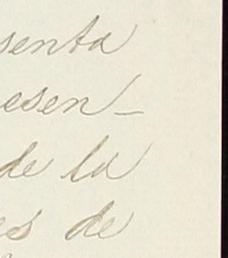 senta
esen-
de la
es de